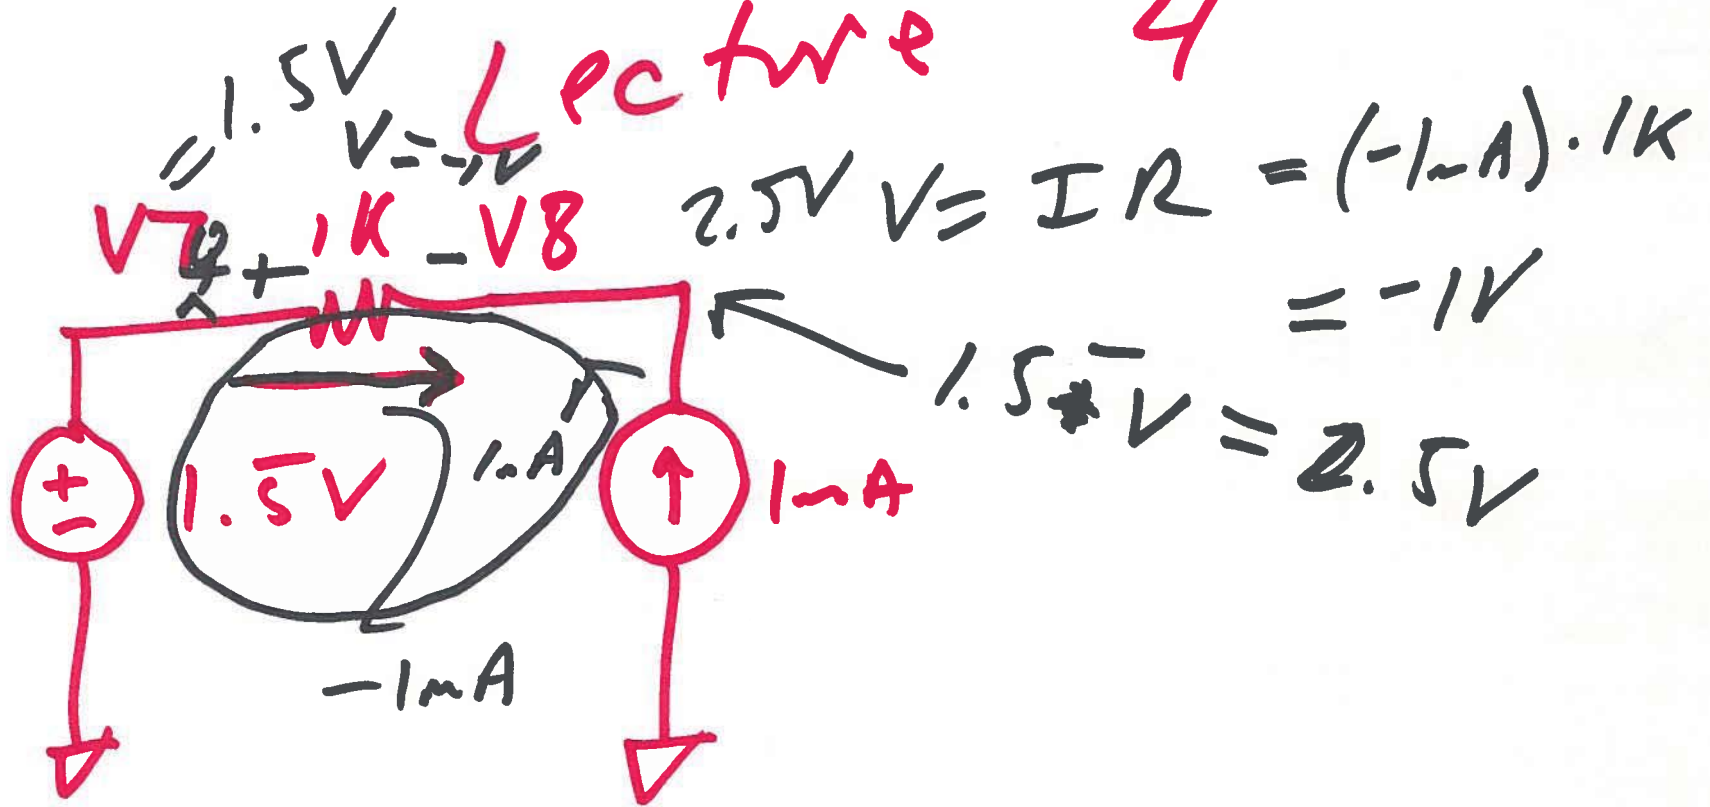 Lecture 4
= 1.5V
V = -1V
V7 + 1K - V8
2.5V V = IR = (-1mA) · 1K
= -1V
1.5 - V = 2.5V
+
-
1.5V
1mA
1mA
-1mA